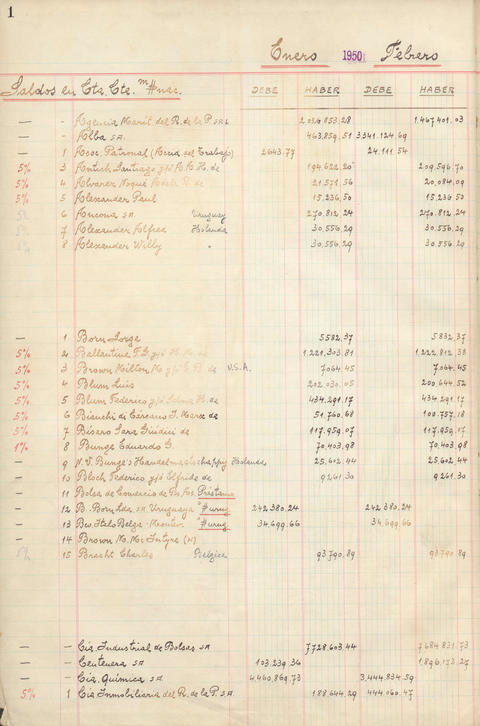 1
Enero 1950 Febrero
Saldos en Cta. Cte. m$nac. DEBE HABER DEBE HABER
- - Agencia Marit. del R. de la P. SRL 2.036.853,28 1.467.401.03
- - Alba SA. 463,859.51 3341.124.69
- 1 Asoc. Patronal (Accid. del Trabajo) 2643.77 24.111.54
5% 3 Antich Santiago y/o A. A. H. de 194,622.20 209,596.70
5% 4 Alvarez Noqué Adela R. de 21,571.56 20,084.09
5% 5 Alexander Paul 15,236,50 15,236.50
5% 6 Ancona SA Uruguay 270.812.24 270.812.24
5% 7 Alexander Alfred Holanda 30.556.29 30.556.29
8 Alexander Willy " 30,556.29 30.556.29
- 1 Born Jorge 5582,37 5832,37
5% 2 Ballantine T. G. y/o 1,221,303,81 1,222,812,38
5% 3 Brown Milton M. y/o G. B. de U.S.A. 7064.45 7064.45
5% 4 Blum Luis 202030.05 200644.52
5% 5 Blum Federico y/o de 434,291.17 434,291.17
5% 6 Bianchi de Cárcano I. Marx de 51.760,68 100.757,18
5% 7 Bisero Sara Guidini de 117,959,07 117,959.07
1% 8 Bunge Eduardo G. 70,403,98 70,403,98
- 9 N. V. Bunge's Handelmaatschappij Holanda 25,602.44 25,602.44
- 10 Bloch Federico y/o Elfride de 9261.30 9261.30
- 11 Bolsa de Comercio de Bs. As. Prestamo
- 12 B. Born Ltda SA Uruguaya $urug 242380.24 242380.24
- 13 Bco. Italo Belga - Montev. $urug 34,699.66 34,699.66
- 14 Brown M. Mc Intyre (H)
5% 15 Bracht Charles Belgica 93790,89 93790,89
- - Cia. Industrial de Bolsas SA 7728603.44 7684831.73
- - Centenera SA 103.239,36 1.896.173.27
- - Cia. Química SA 4,460,869.73 3,444.834.59
5% 1 Cia Inmobiliaria del R. de la P. SA 188644.29 444.060.47